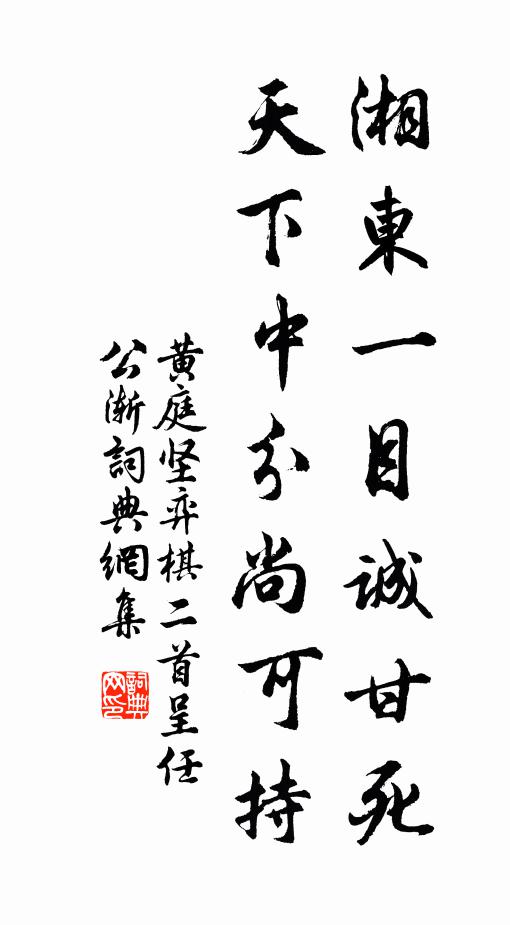 湘東一目誠甘死
天下中分尚可持
黄庭坚弈棋二首呈任
公漸詞典網集
詞典
网印